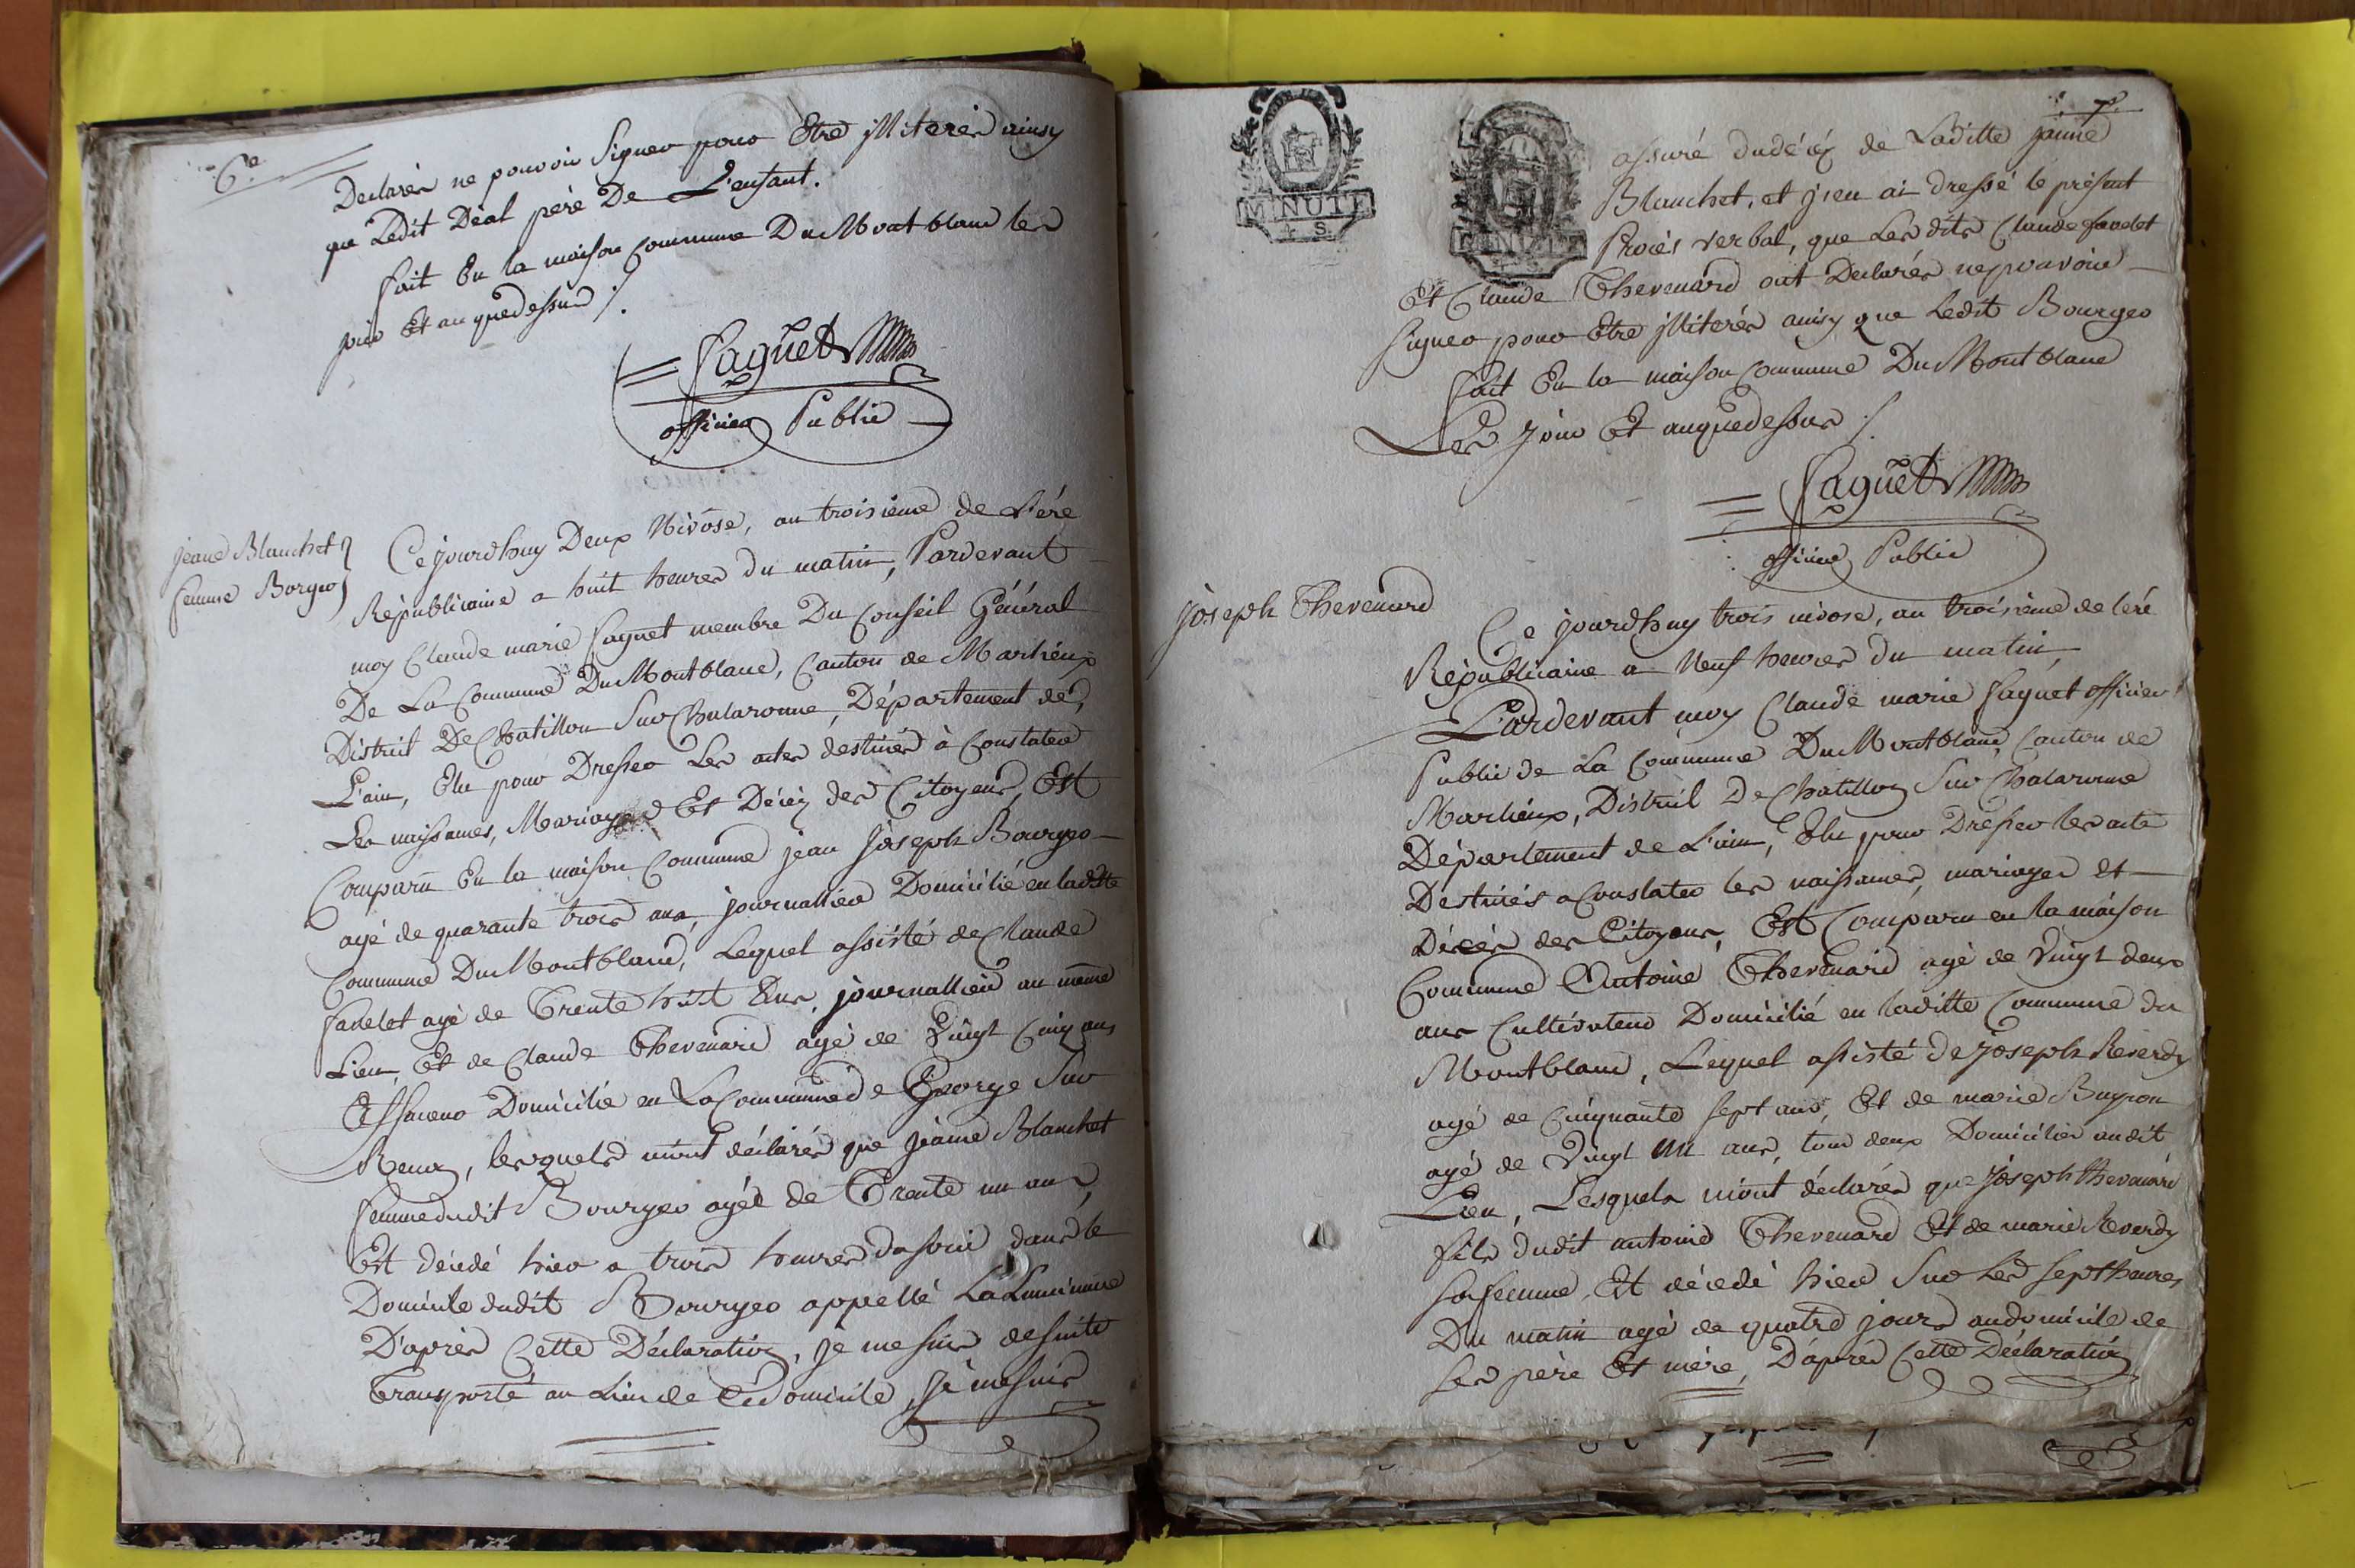 6e
Declarés ne pouvoir Signer pour Etre jlliterés ainsy
que Ledit Déal père De L'enfant.
fait En la maison Commune Du Montblanc les
jour Et an quedessus /.
Saguet
officier Public
jeane Blanchet
femme Borgeo
Cejourdhuy Deux Nivôse, an troisième de L'éré
Républicaine a huit heures du matin, Pardevant
moy Claude marie Saguet membre Du Conseil Général
De La Commune Du Montblanc, Canton de Marlieux
District De Chatillon Sur Chalaronne, Département de
L'ain, Elu pour Dresser Les actes destinés à Constater
Les naissances, Mariages Et Décéz des Citoyens, Est
Comparu En la maison Commune jean joseph Bourgeo
agé de quarante trois ans, journallier Domicilié en laditte
Commune Du Montblanc, Lequel assisté de Claude
favelot agé de Trente huit Ans, journallier au même
Lieu, Et de Claude Thevenard agé de Vingt Cinq ans
Domicilié en La Commune de George Sur
Renon, lesquels m'ont déclarés que jeanne Blanchet
femme dudit Bourgeo agéé de Trente un ans,
Est décédé hier a trois heures du soir dans le
Domicile dudit Bourgeo appellé
D'après Cette Déclaration, je me suis desuite
Transporté au Lieu de Ce domicile, je me suis
7e
assuré du décéz de Laditte jeanne
Blanchet, et j'en ai dressé le présent
Procés verbal, que Les dits Claude favelot
Et Claude Thevenard ont Declarés ne pouvoir
Signer pour Etre jlliterés ainsy que Ledit Bourgeo
fait En la maison Commune Du Montblanc
Les jour Et anquedessus /.
MINUTE
MINUTE
Saguet
officier Public
joseph Thevenard
Ce jourdhuy trois nivose, an troisième de l'eré
Républicaine a Neuf heures du matin,
Pardevant moy Claude marie Saguet officier
Public de La Commune Du Montblanc Canton de
Marlieux, District De Chatillon Sur Chalaronne
Département de L'ain, Elu pour Dresser les acte
Destinés a Constater les naissances, mariages et
Décés des Citoyens, Est Comparu en la maison
Commune Antoine Thevenard agé de Vingt deux
ans Cultivateur Domicilié en laditte Commune du
Montblanc, Lequel assisté de joseph Reverdy
agé de Cinquante sept ans, Et de marie Buyron
agé de Vingt un ans, tous deux Domiciliés audit
Lieu, Lesquels m'ont déclarés que joseph thevenard
fils dudit antoine Thevenard Et de marie Reverdy
sa femme, Et décédé hier Sur Les sept heures
Du matin agé de quatre jours au domicile de
Ses père Et mère, D'après Cette Déclaration